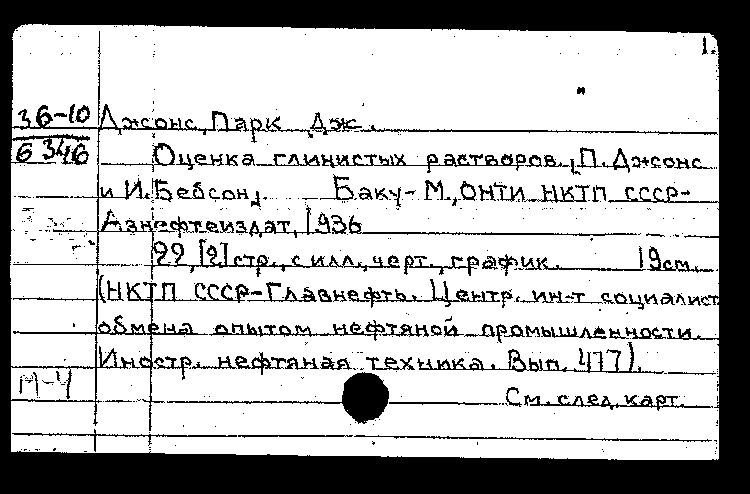 1.
36-10 Джонс, Парк Дж.
6346 Оценка глинистых растворов. [П. Джонс
и И. Бебсон]. Баку-М., ОНТИ НКТП СССР-
Азнефтеиздат, 1936
22, [2] стр., с илл., черт., график. 19см.
(НКТП СССР-Главнефть. Центр. ин-т социалист
обмена опытом нефтяной промышленности.
Иностр. нефтяная техника. Вып. 477).
М-Ч
См. след. карт.